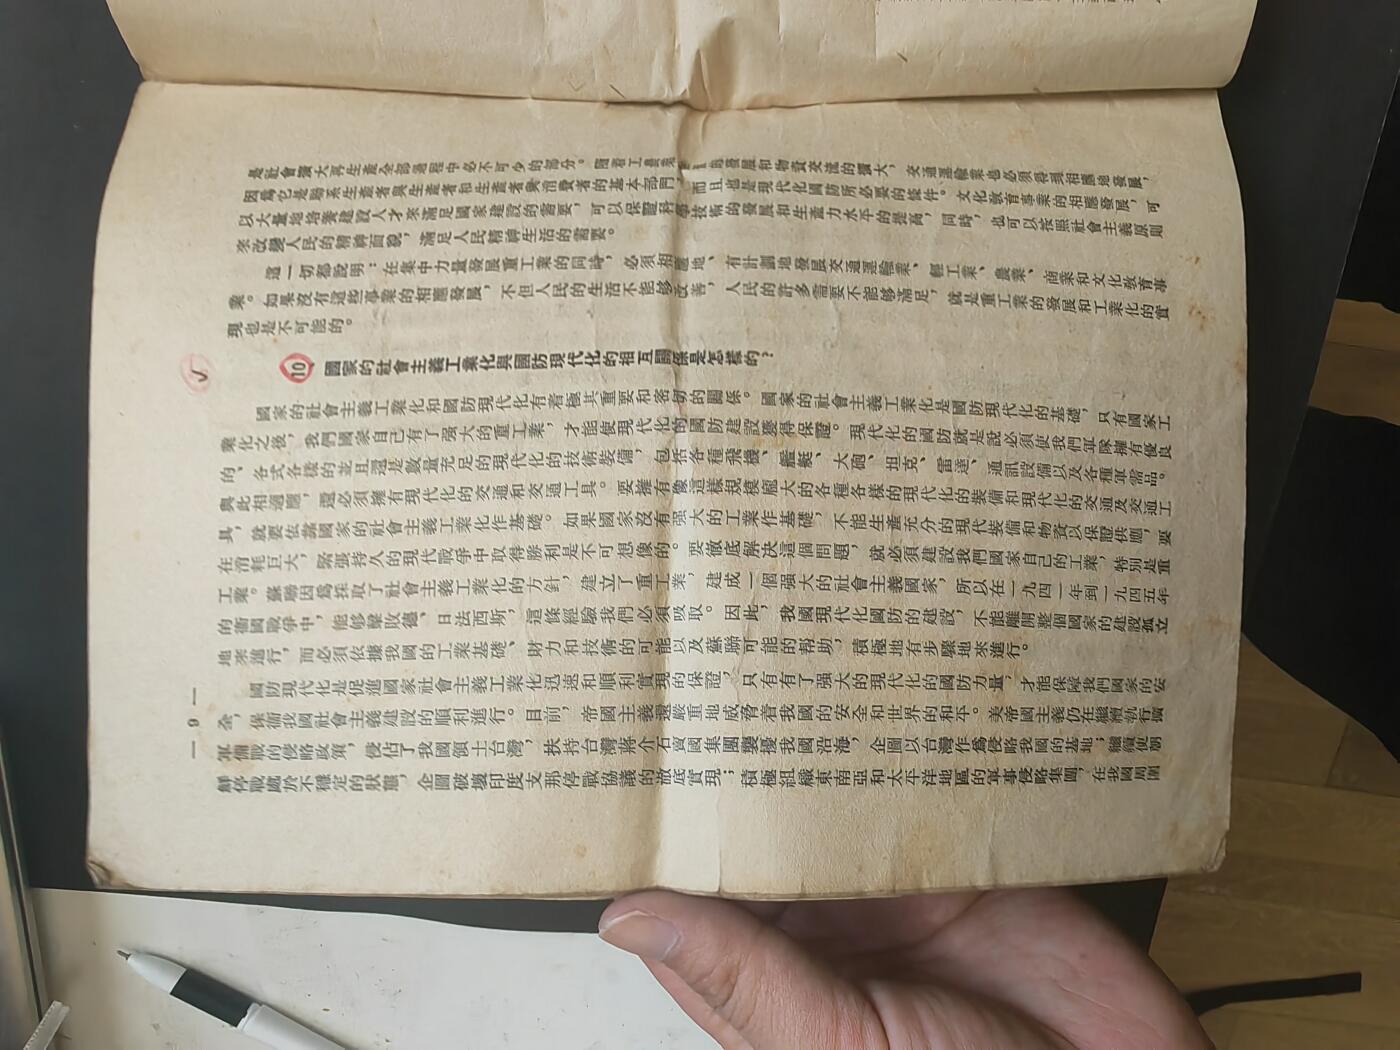 是社會擴大再生產全部過程中必不可少的部分。隨着工農業的發展和物資交流的擴大，交通運輸業也必須得到相應地發展，
因爲它是聯系生產者與生產者和生產者與消費者的基本部門，而且也是現代化國防所必要的條件。文化教育事業的相應發展，可
以大量地培養建設人才來滿足國家建設的需要，可以保證科學技術的發展和生產力水平的提高，同時，也可以按照社會主義原則
來改變人民的精神面貌，滿足人民精神生活的需要。
這一切都說明：在集中力量發展重工業的同時，必須相應地、有計劃地發展交通運輸業、輕工業、農業、商業和文化教育事
業。如果沒有這些事業的相應發展，不但人民的生活不能够改善，人民的許多需要不能够滿足，就是重工業的發展和工業化的實
現也是不可能的。
10 國家的社會主義工業化與國防現代化的相互關係是怎樣的？
國家的社會主義工業化和國防現代化有着極其重要和密切的關係。國家的社會主義工業化是國防現代化的基礎，只有國家工
業化之後，我們國家自己有了强大的重工業，才能使現代化的國防建設獲得保證。現代化的國防就是說必須使我們軍隊擁有優良
的、各式各樣的並且還是數量充足的現代化的技術裝備，包括各種飛機、艦艇、大砲、坦克、雷達、通訊設備以及各種軍需品。
與此相適應，還必須擁有現代化的交通和交通工具。要擁有像這樣規模龐大的各種各樣的現代化的裝備和現代化的交通及交通工
具，就要依靠國家的社會主義工業化作基礎。如果國家沒有强大的工業作基礎，不能生產充分的現代裝備和物資以保證供應，要
在消耗巨大，緊張持久的現代戰爭中取得勝利是不可想像的。要徹底解決這個問題，就必須建設我們國家自己的工業，特別是重
工業。蘇聯因爲採取了社會主義工業化的方針，建立了重工業，建成一個强大的社會主義國家，所以在一九四一年到一九四五年
的衞國戰爭中，能够擊敗德、日法西斯，這條經驗我們必須吸取。因此，我國現代化國防的建設，不能離開整個國家的建設孤立
地來進行，而必須依據我國的工業基礎、財力和技術的可能以及蘇聯可能的幫助，積極地有步驟地來進行。
國防現代化是促進國家社會主義工業化迅速和順利實現的保證，只有有了强大的現代化的國防力量，才能保障我們國家的安
全，保衞我國社會主義建設的順利進行。目前，帝國主義還嚴重地威脅着我國的安全和世界的和平。美帝國主義仍在繼續執行擴
軍備戰的侵略政策，侵佔了我國領土台灣，扶持台灣蔣介石賣國集團襲擾我國沿海，企圖以台灣作爲侵略我國的基地；繼續使朝
鮮停戰處於不穩定的狀態，企圖破壞印度支那停戰協議的澈底實現；積極組織東南亞和太平洋地區的軍事侵略集團，在我國周圍
— 9 —